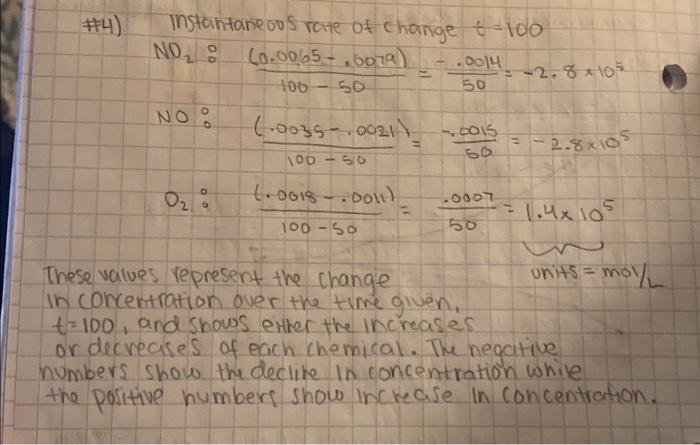 #4) Instantaneous rate of change t=100
NO₂: (0.0065-.0079)/(100-50) = -.0014/50 = -2.8×10⁵
NO: (.0035-.0021)/(100-50) = -.0015/50 = -2.8×10⁵
O₂: (.0018-.0011)/(100-50) = .0007/50 = 1.4×10⁵
units = mol/L
These values represent the change
in concentration over the time given,
t=100, and shows either the increases
or decreases of each chemical. The negative
numbers show the decline in concentration while
the positive numbers show increase in concentration.